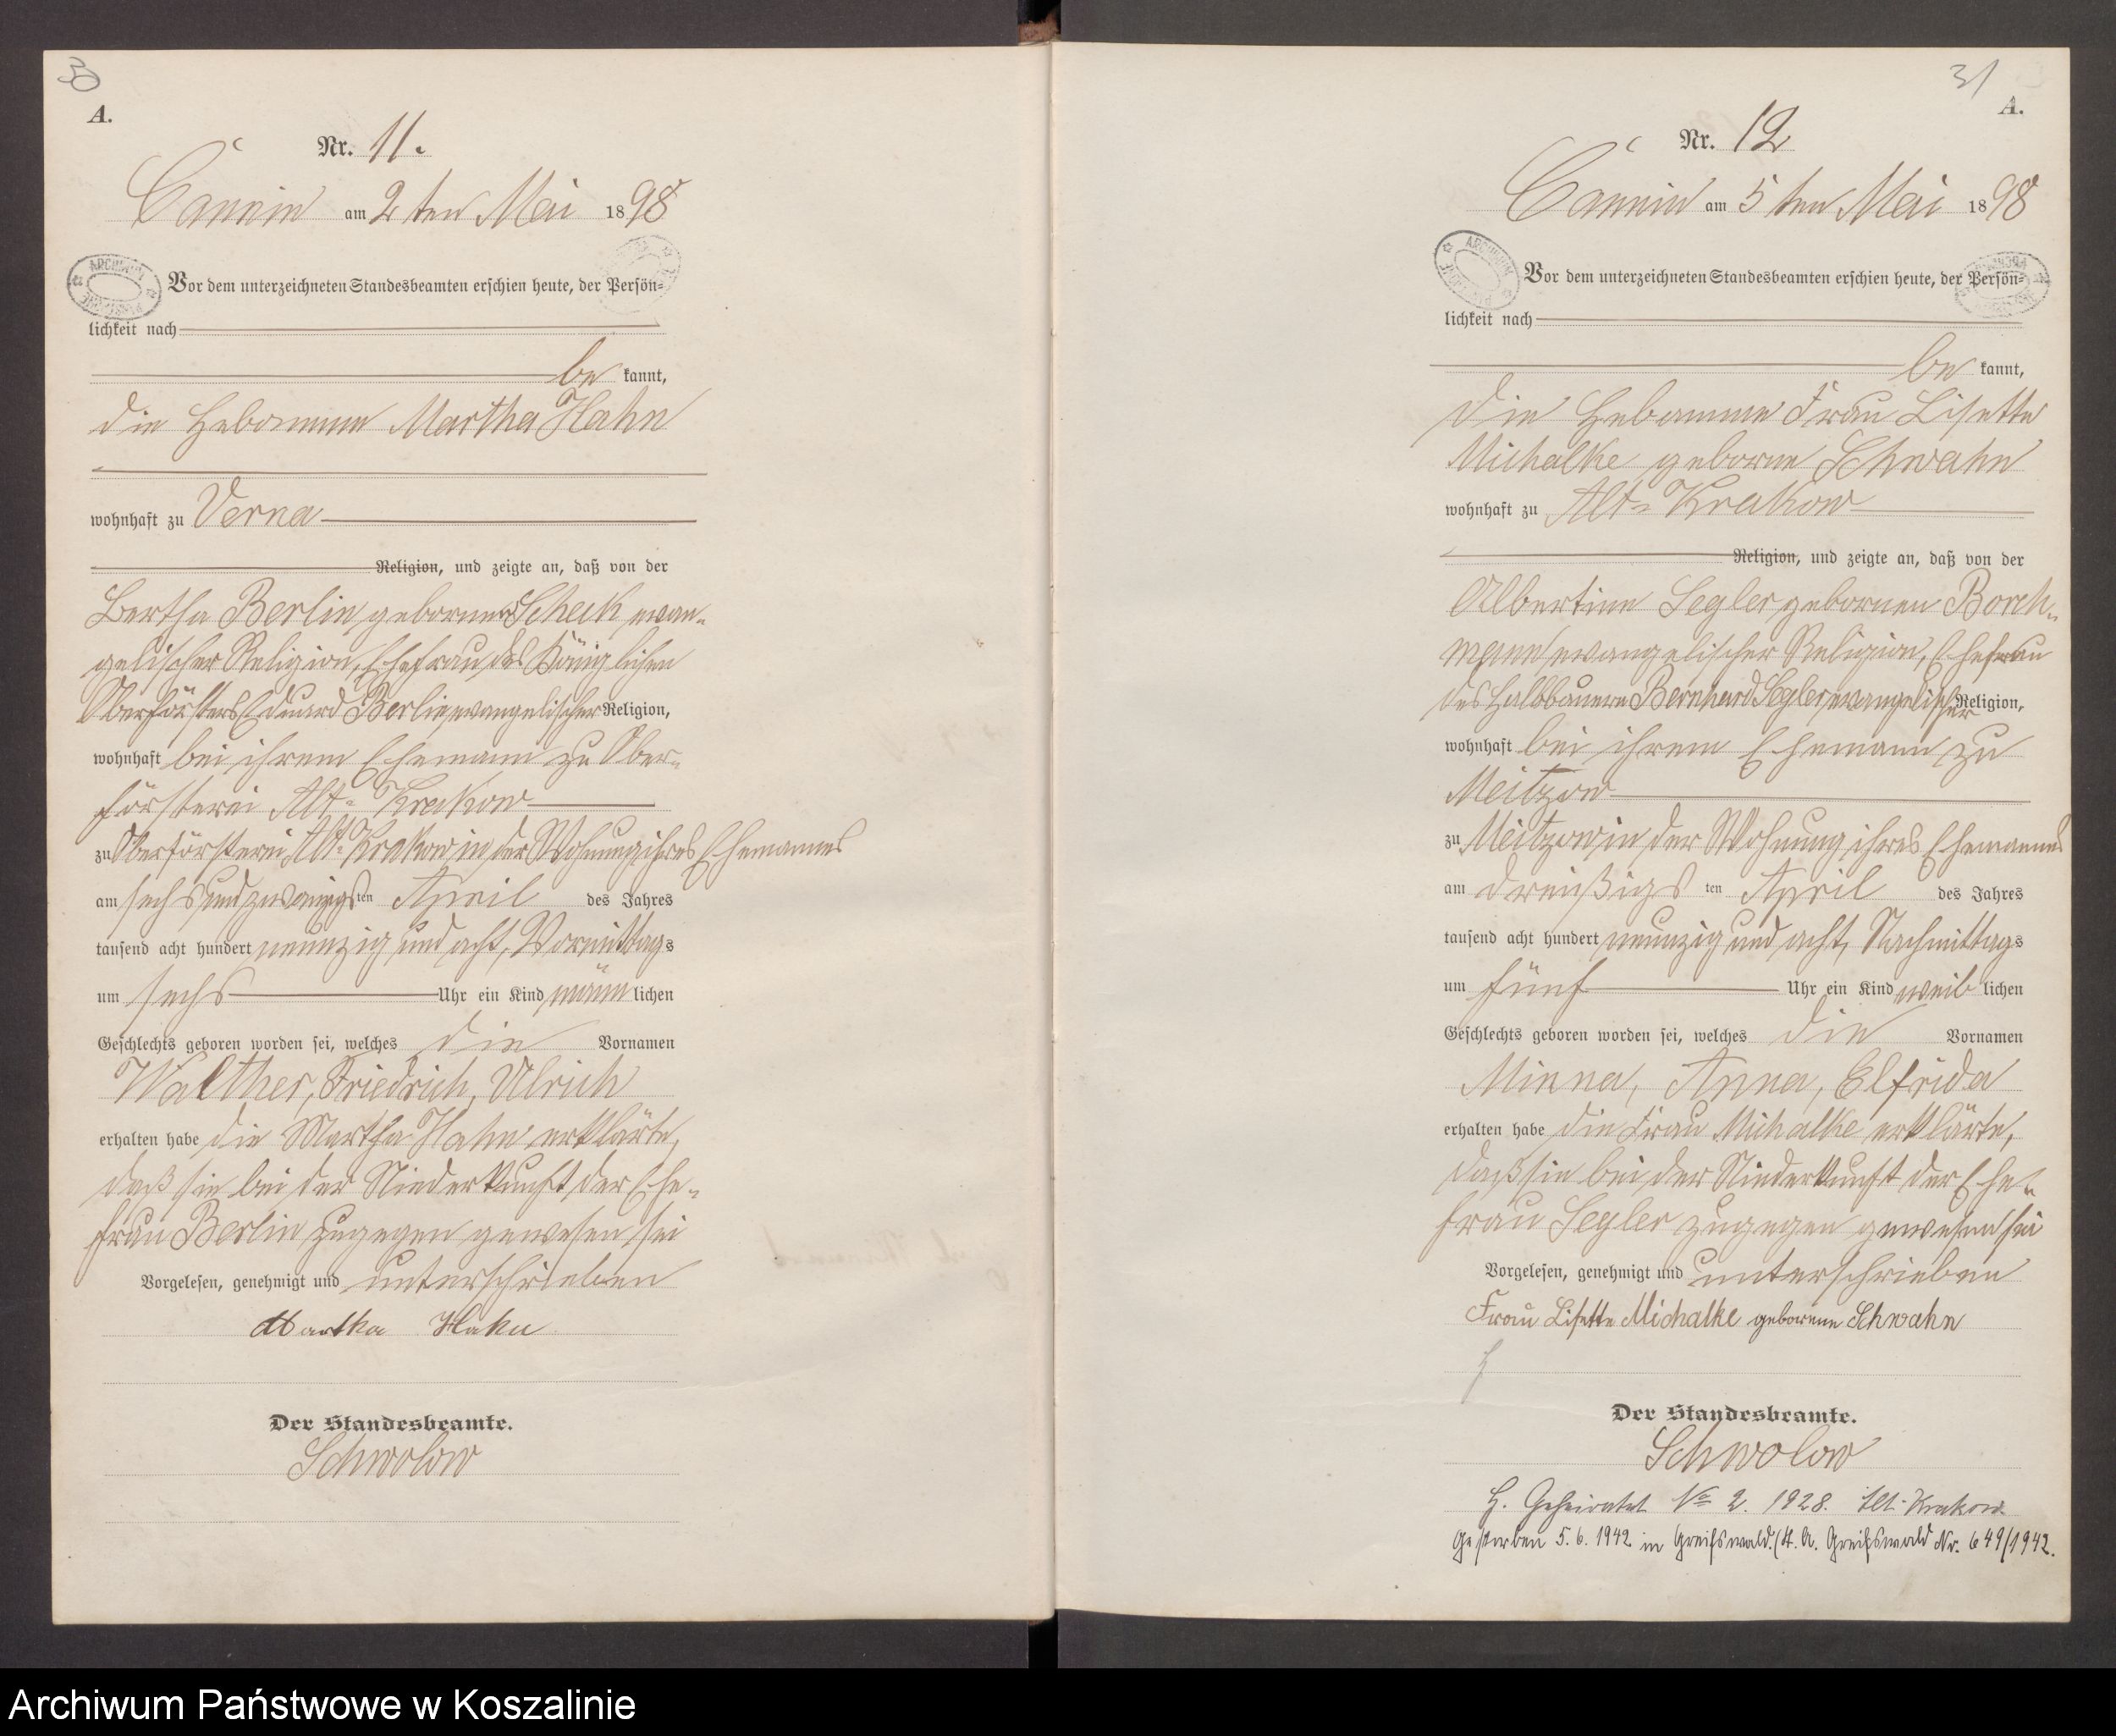 30
A.
Nr. 11.
Cannin am 2ten Mai 1898
Vor dem unterzeichneten Standesbeamten erschien heute, der Persön=
lichkeit nach
be kannt,
die Hebamme Martha Hahn
wohnhaft zu Verna
Religion, und zeigte an, daß von der
Bertha Berlin geborenen Scheck evan-
gelischer Religion, Ehefrau des Königlichen
Oberförsters Eduard Berlin, evangelischer Religion,
wohnhaft bei ihrem Ehemann zu Ober-
försterei Alt-Krakow
zu Oberförsterei Alt-Krakow in der Wohnung ihres Ehemannes
am sechs und zwanzigs ten April des Jahres
tausend acht hundert neunzig und acht, Vormittags
um sechs Uhr ein Kind männ lichen
Geschlechts geboren worden sei, welches die Vornamen
Walther, Friedrich, Ulrich
erhalten habe die Martha Hahn erklärte,
daß sie bei der Niederkunft der Ehe-
frau Berlin zugegen gewesen sei
Vorgelesen, genehmigt und unterschrieben
Martha Hahn
Der Standesbeamte.
Schwolow
31
A.
Nr. 12
Cannin am 5ten Mai 1898
Vor dem unterzeichneten Standesbeamten erschien heute, der Persön=
lichkeit nach
be kannt,
die Hebamme Frau Lisette
Michalke geborne Schwahn
wohnhaft zu Alt-Krakow
Religion, und zeigte an, daß von der
Albertine Segler gebornen Borch-
mann evangelischer Religion, Ehefrau
des Halbbauern Bernhard Segler, evangelischer Religion,
wohnhaft bei ihrem Ehemann zu
Meitzow
zu Meitzow in der Wohnung ihres Ehemannes
am dreißigs ten April des Jahres
tausend acht hundert neunzig und acht, Nachmittags
um fünf Uhr ein Kind weib lichen
Geschlechts geboren worden sei, welches die Vornamen
Minna, Anna, Elfrida
erhalten habe die Frau Michalke erklärte,
daß sie bei der Niederkunft der Ehe-
frau Segler zugegen gewesen sei
Vorgelesen, genehmigt und unterschrieben
Frau Lisette Michalke geborene Schwahn
Der Standesbeamte.
Schwolow
H. Geheiratet No 2. 1928. Alt-Krakow
Gestorben 5.6.1942 in Greifswald. (St. A. Greifswald Nr. 649/1942.
Archiwum Państwowe w Koszalinie